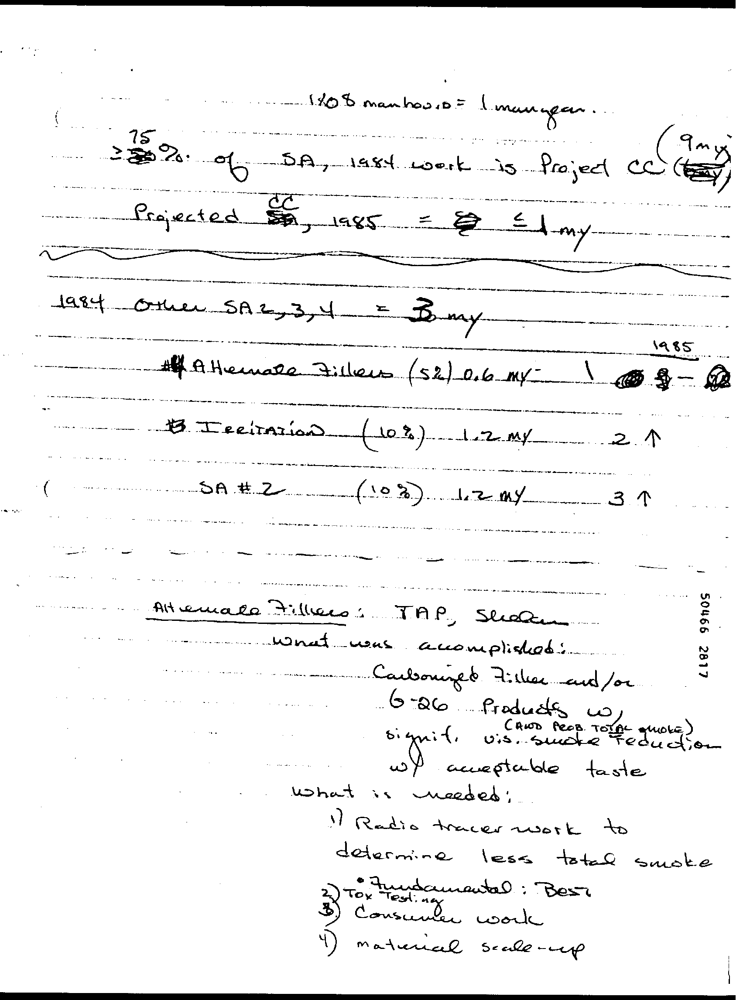 1808 manhours = 1 manyear.
≥ 75 %. of SA, 1984 work is Project CC (9my)
Projected CC, 1985 = ≤ 1 my
1984 Other SA 2, 3, 4 = 3 my
1985
#4 Alternate Fillers (5%) 0.6 my - 1
#3 Irritation (10%) 1.2 my 2 ↑
SA # 2 (10%) 1.2 my 3 ↑
Alternate Fillers: TAP,
What was accomplished:
Carbonized Filler and/or
G-26 Products w/
(AND PROB. TOTAL SMOKE)
signif. vis. smoke reduction
w/ acceptable taste
What is needed:
1) Radio tracer work to
determine less total smoke
• Fundamental: Best
2) Tox Testing
3) Consumer work
4) material scale-up
50466 2817